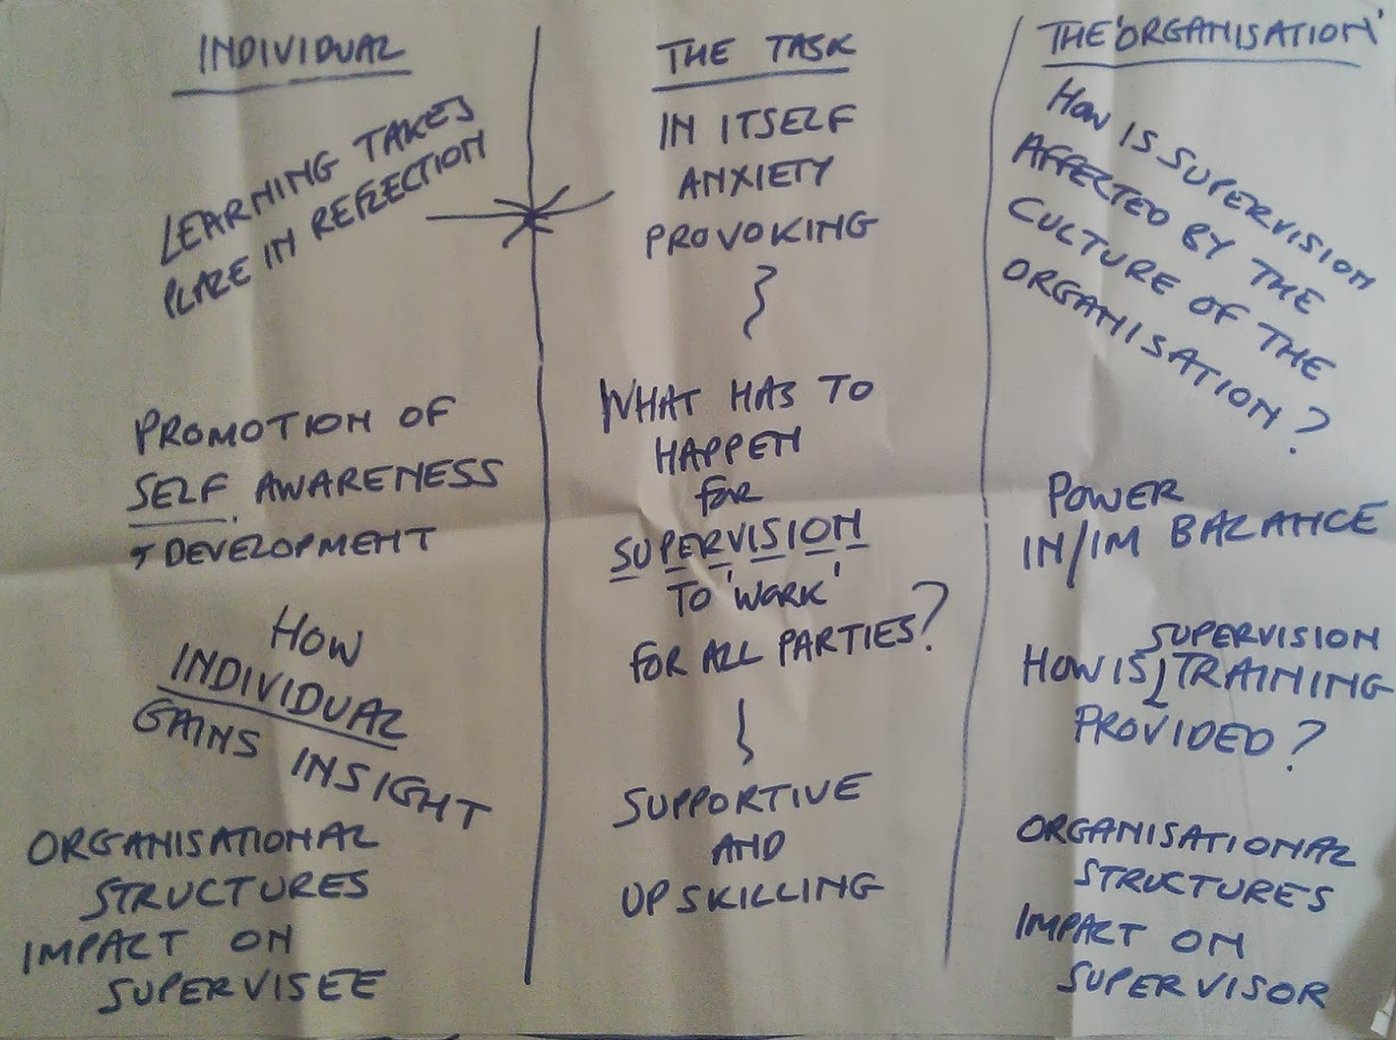 INDIVIDUAL
LEARNING TAKES
PLACE IN REFLECTION
PROMOTION OF
SELF AWARENESS
& DEVELOPMENT
HOW
INDIVIDUAL
GAINS INSIGHT
ORGANISATIONAL
STRUCTURES
IMPACT ON
SUPERVISEE
THE TASK
IN ITSELF
ANXIETY
PROVOKING
WHAT HAS TO
HAPPEN
FOR
SUPERVISION
TO 'WORK'
FOR ALL PARTIES?
SUPPORTIVE
AND
UPSKILLING
THE 'ORGANISATION'
HOW IS SUPERVISION
AFFECTED BY THE
CULTURE OF THE
ORGANISATION?
POWER
IN/IM BALANCE
SUPERVISION
HOW IS TRAINING
PROVIDED?
ORGANISATIONAL
STRUCTURES
IMPACT ON
SUPERVISOR